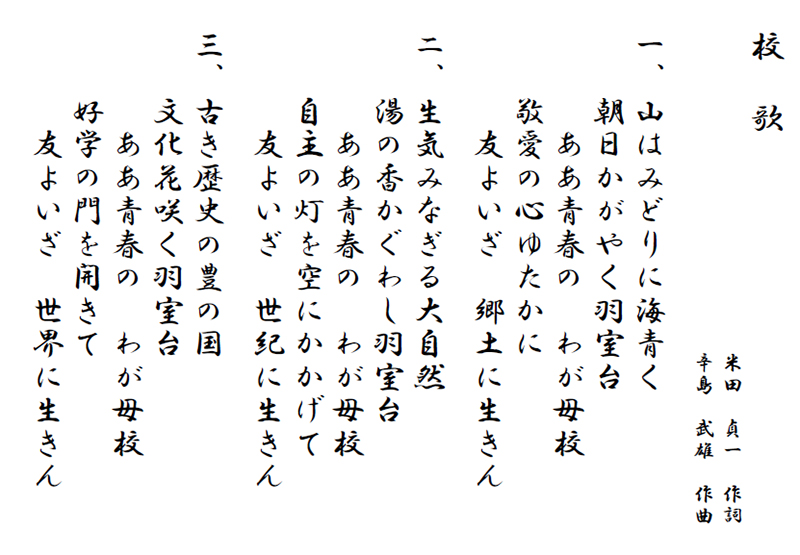 校 歌
米田 貞一 作詞
辛島 武雄 作曲
一、山はみどりに海青く
朝日かがやく羽室台
ああ青春の わが母校
敬愛の心ゆたかに
友よいざ 郷土に生きん
二、生気みなぎる大自然
湯の香かぐわし羽室台
ああ青春の わが母校
自主の灯を空にかかげて
友よいざ 世紀に生きん
三、古き歴史の豊の国
文化花咲く羽室台
ああ青春の わが母校
好学の門を開きて
友よいざ 世界に生きん